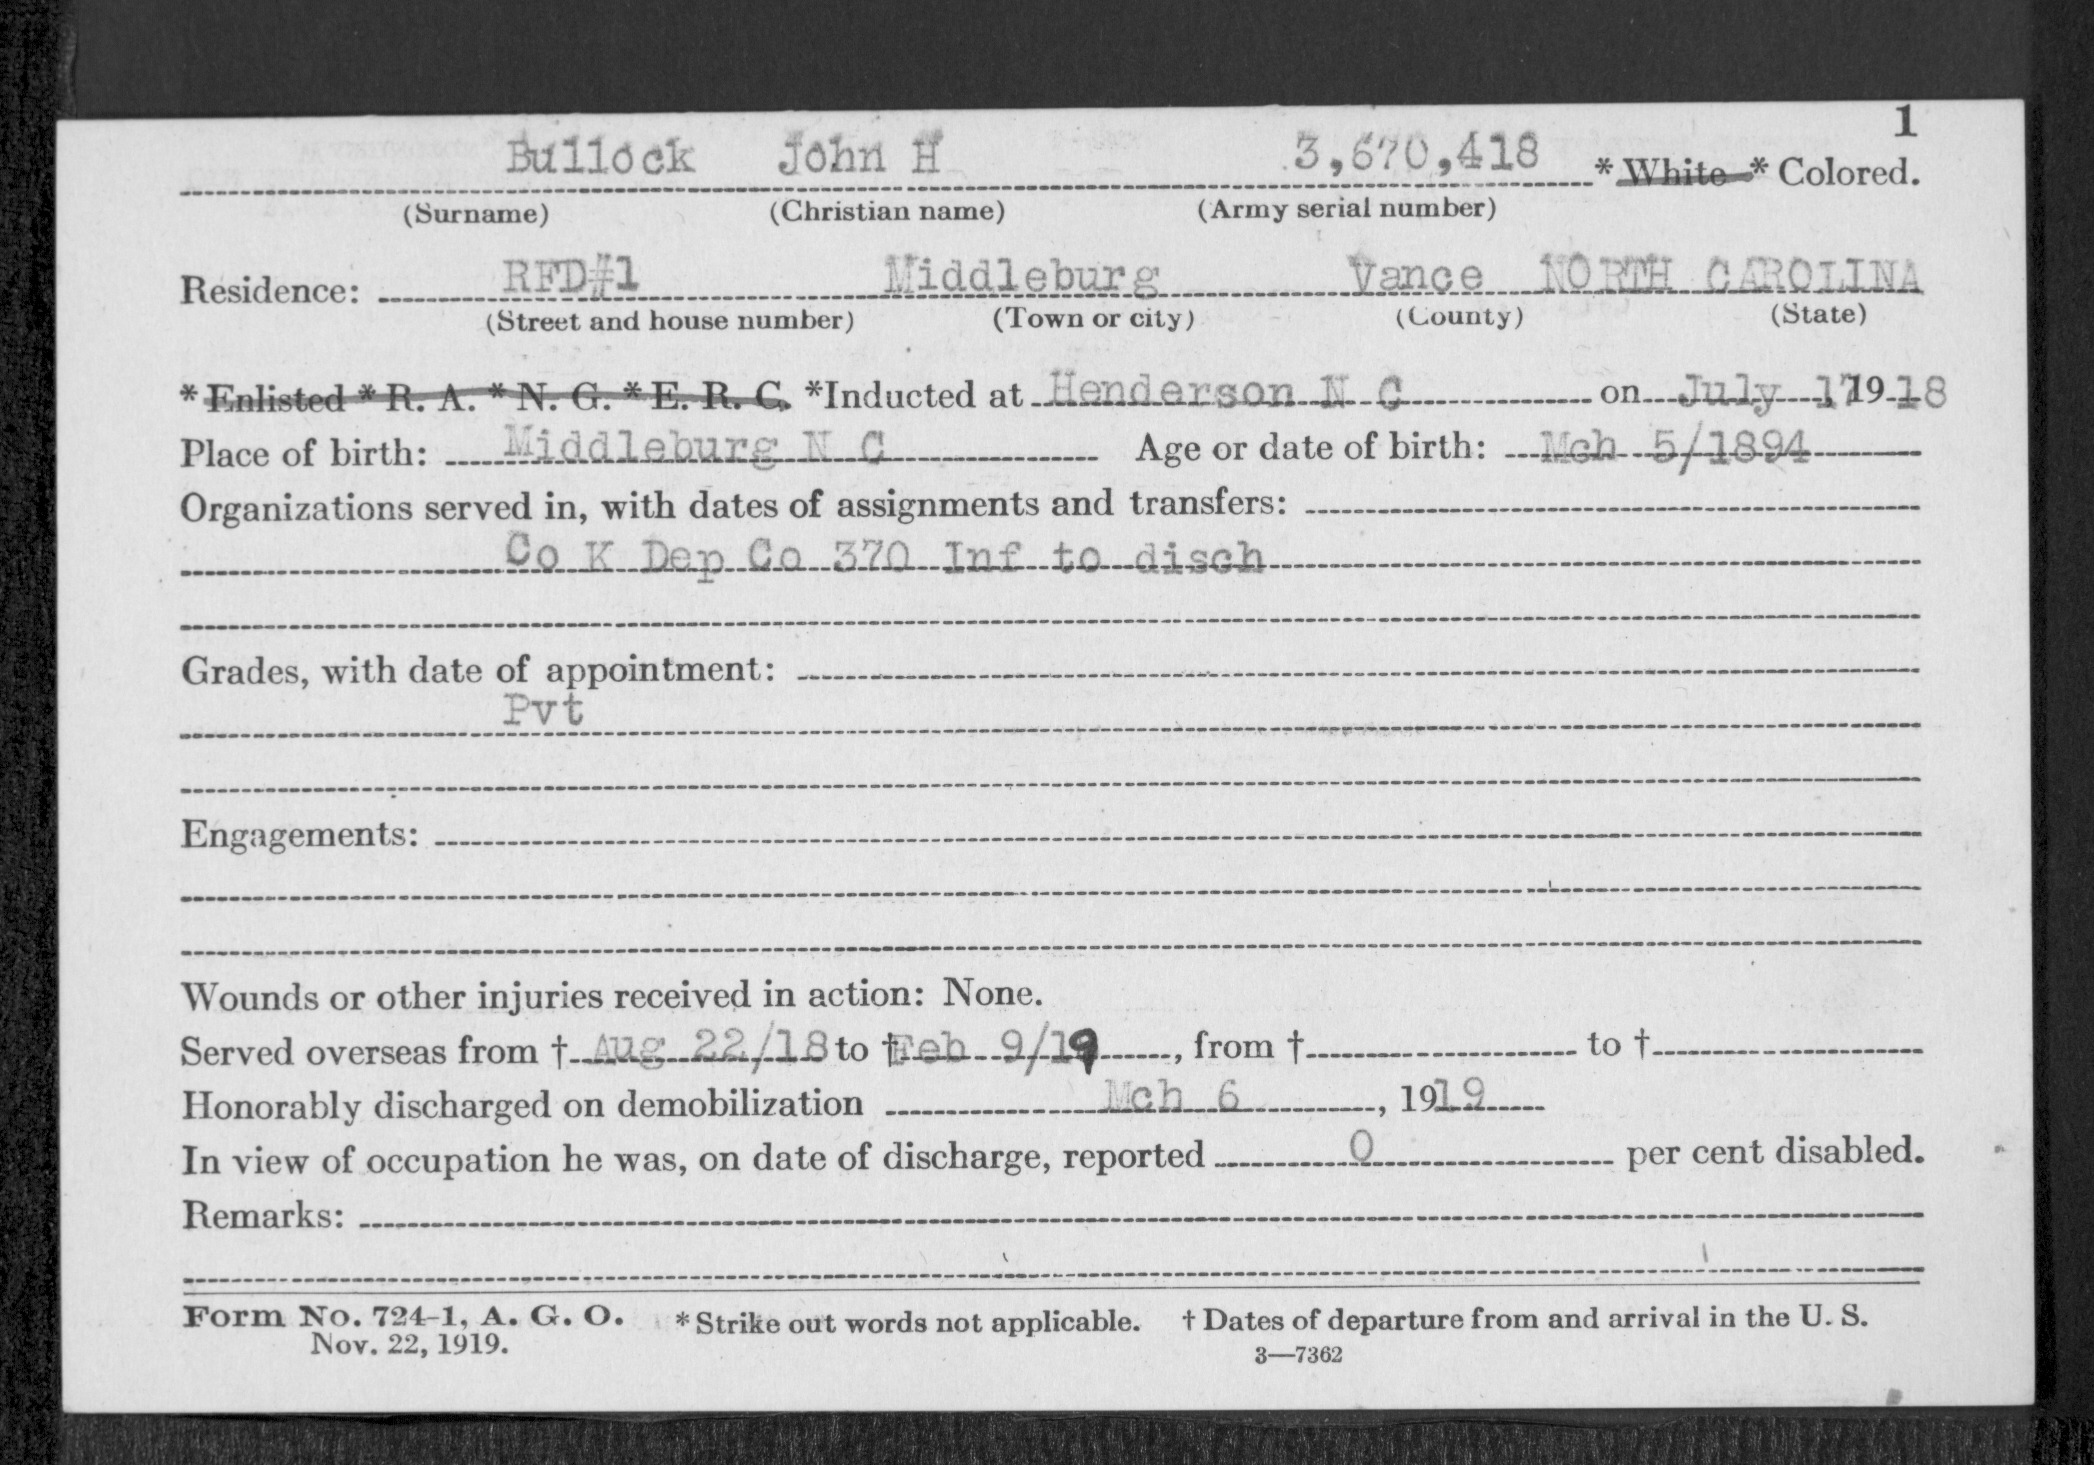 1
Bullock John H 3,670,418 * White * Colored.
(Surname) (Christian name) (Army serial number)
Residence: RFD#1 Middleburg Vance NORTH CAROLINA
(Street and house number) (Town or city) (County) (State)
* Enlisted * R. A. * N. G. * E. R. C. *Inducted at Henderson N C on July 17 1918
Place of birth: Middleburg N C Age or date of birth: Mch 5/1894
Organizations served in, with dates of assignments and transfers:
Co K Dep Co 370 Inf to disch
Grades, with date of appointment:
Pvt
Engagements:
Wounds or other injuries received in action: None.
Served overseas from † Aug 22/18 to † Feb 9/19, from † to †
Honorably discharged on demobilization Mch 6, 1919
In view of occupation he was, on date of discharge, reported 0 per cent disabled.
Remarks:
Form No. 724-1, A. G. O. * Strike out words not applicable. † Dates of departure from and arrival in the U. S.
Nov. 22, 1919. 3—7362